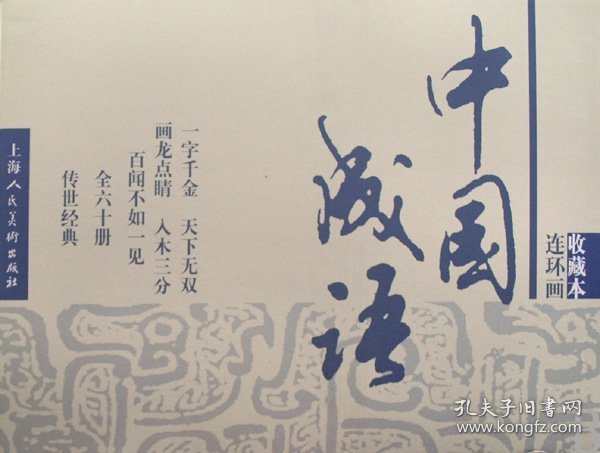 收藏本
连环画
中国
成语
一字千金 天下无双
画龙点睛 入木三分
百闻不如一见
全六十册
传世经典
上海人民美術出版社
孔夫子旧书网
www.kongfz.com